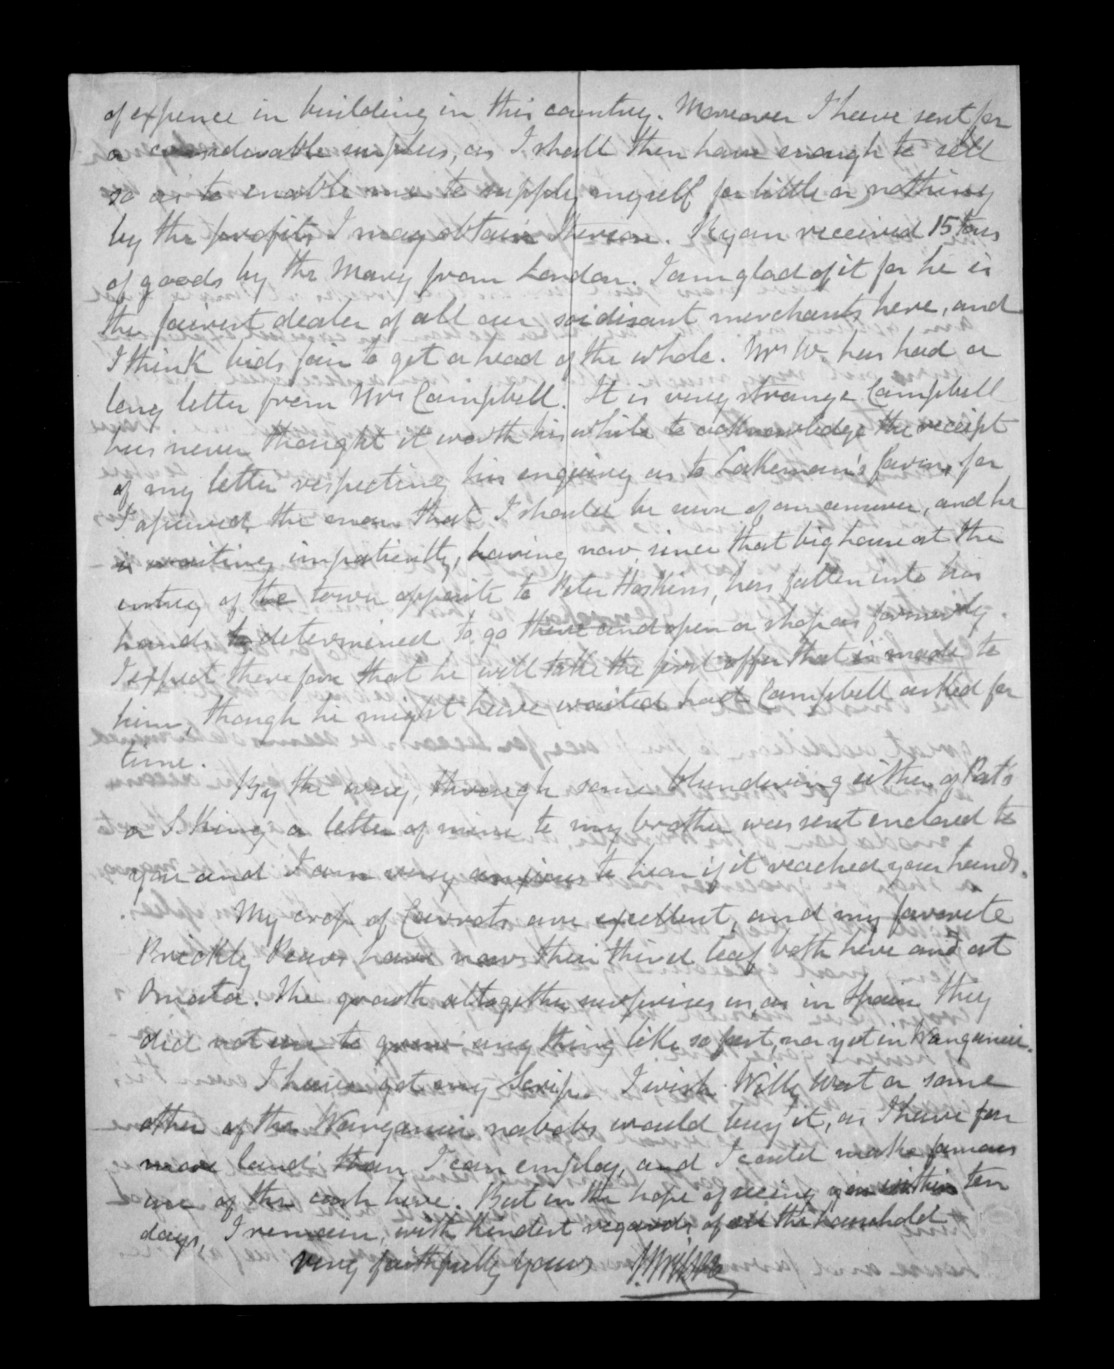 of expence in building in this country. Moreover I have sent for
a considerable surplus, as I shall then have enough to sell
so as to enable me to supply myself for little or nothing
by the profits I may obtain thereon. Ryan received 15 tons
of goods by the Mary from London. I am glad of it for he is
the fairest dealer of all our soidisant merchants here, and
I think bids fair to get ahead of the whole. Mrs W. has had a
long letter from Mrs Campbell. It is very strange Campbell
has never thought it worth his while to acknowledge the receipt
of my letter respecting his enquiry as to Lakeman's farm, for
I assured the man that I should be sure of an answer, and he
is waiting impatiently, having now since that big house at the
entry of the town opposite to Peter Hoskins, has fallen into his
hands determined to go there and open a shop as formerly.
I expect therefore that he will take the first offer that is made to
him, though he might have waited had Campbell asked for
time.
By the way, through some blundering either of Pat's
or S. King a letter of mine to my brother was sent enclosed to
you and I am very anxious to hear if it reached your hands.
My crop of Carrots are excellent, and my favorite
Prickly Pears have now their third leaf both here and at
Omata. The growth altogether surprises us as in Spain they
did not use to grow any thing like so fast, nor yet in Wanganui.
I have got my Scrip. I wish Willy Wat or some
other of the Wanganui nabobs would buy it, as I have far
more land than I can employ, and I could make famous
use of the cash here. But in the hope of seeing you within ten
days, I remain, with kindest regards of all the household
very faithfully yours